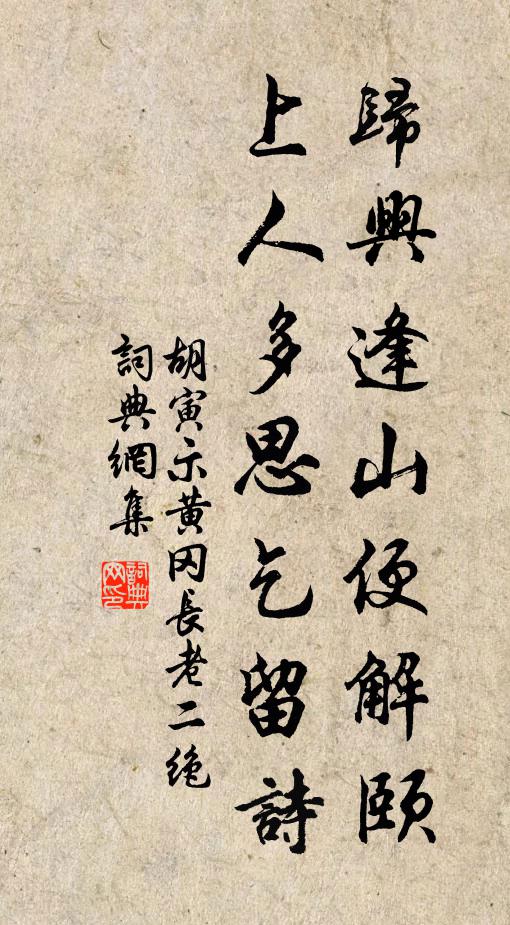 歸興逢山便解頤
上人多思乞留詩
胡寅示黃冈長老二絶
詞典網集
詞典
网印